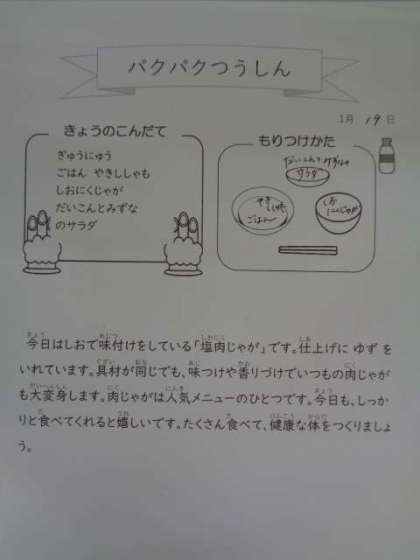 パクパクつうしん
1月 19 日
きょうのこんだて
ぎゅうにゅう
ごはん やきししゃも
しおにくじゃが
だいこんとみずな
のサラダ
もりつけかた
サラダ
ごはん
今日はしおで味付けをしている「塩肉じゃが」です。仕上げに ゆず を
いれています。具材が同じでも、味つけや香りづけでいつもの肉じゃが
も大変身します。肉じゃがは人気メニューのひとつです。今日も、しっか
りと食べてくれると嬉しいです。たくさん食べて、健康な体をつくりましょ
う。